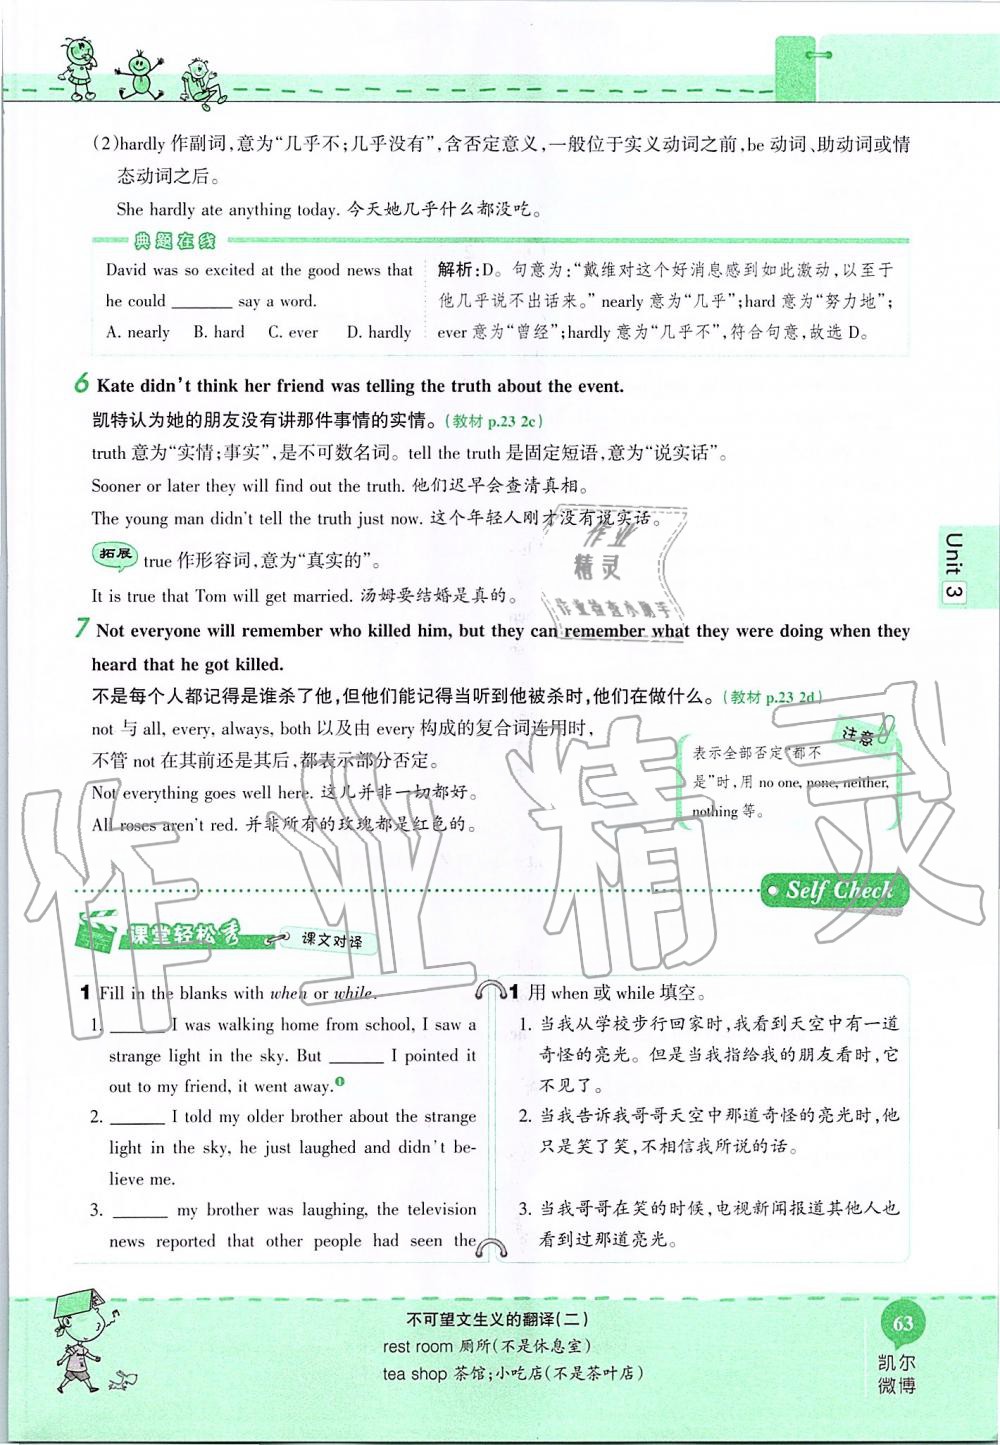 (2)hardly 作副词,意为“几乎不;几乎没有”,含否定意义,一般位于实义动词之前,be 动词、助动词或情
态动词之后。
She hardly ate anything today. 今天她几乎什么都没吃。
典题在线
David was so excited at the good news that
he could ______ say a word.
A. nearly B. hard C. ever D. hardly
解析:D。句意为:“戴维对这个好消息感到如此激动,以至于
他几乎说不出话来。”nearly 意为“几乎”;hard 意为“努力地”;
ever 意为“曾经”;hardly 意为“几乎不”,符合句意,故选 D。
6 Kate didn't think her friend was telling the truth about the event.
凯特认为她的朋友没有讲那件事情的实情。(教材 p.23 2c)
truth 意为“实情;事实”,是不可数名词。tell the truth 是固定短语,意为“说实话”。
Sooner or later they will find out the truth. 他们迟早会查清真相。
The young man didn't tell the truth just now. 这个年轻人刚才没有说实话。
拓展 true 作形容词,意为“真实的”。
It is true that Tom will get married. 汤姆要结婚是真的。
作业
精灵
作业检查小助手
Unit 3
7 Not everyone will remember who killed him, but they can remember what they were doing when they
heard that he got killed.
不是每个人都记得是谁杀了他,但他们能记得当听到他被杀时,他们在做什么。(教材 p.23 2d)
not 与 all, every, always, both 以及由 every 构成的复合词连用时,
不管 not 在其前还是其后,都表示部分否定。
Not everything goes well here. 这儿并非一切都好。
All roses aren't red. 并非所有的玫瑰都是红色的。
注意
表示全部否定“都不
是”时,用 no one, none, neither,
nothing 等。
作业精灵
Self Check
课堂轻松秀 课文对译
1 Fill in the blanks with when or while.
1. ______ I was walking home from school, I saw a
strange light in the sky. But ______ I pointed it
out to my friend, it went away.❶
2. ______ I told my older brother about the strange
light in the sky, he just laughed and didn't be-
lieve me.
3. ______ my brother was laughing, the television
news reported that other people had seen the
1 用 when 或 while 填空。
1. 当我从学校步行回家时,我看到天空中有一道
奇怪的亮光。但是当我指给我的朋友看时,它
不见了。
2. 当我告诉我哥哥天空中那道奇怪的亮光时,他
只是笑了笑,不相信我所说的话。
3. 当我哥哥在笑的时候,电视新闻报道其他人也
看到过那道亮光。
不可望文生义的翻译(二)
rest room 厕所(不是休息室)
tea shop 茶馆;小吃店(不是茶叶店)
63
凯尔
微博